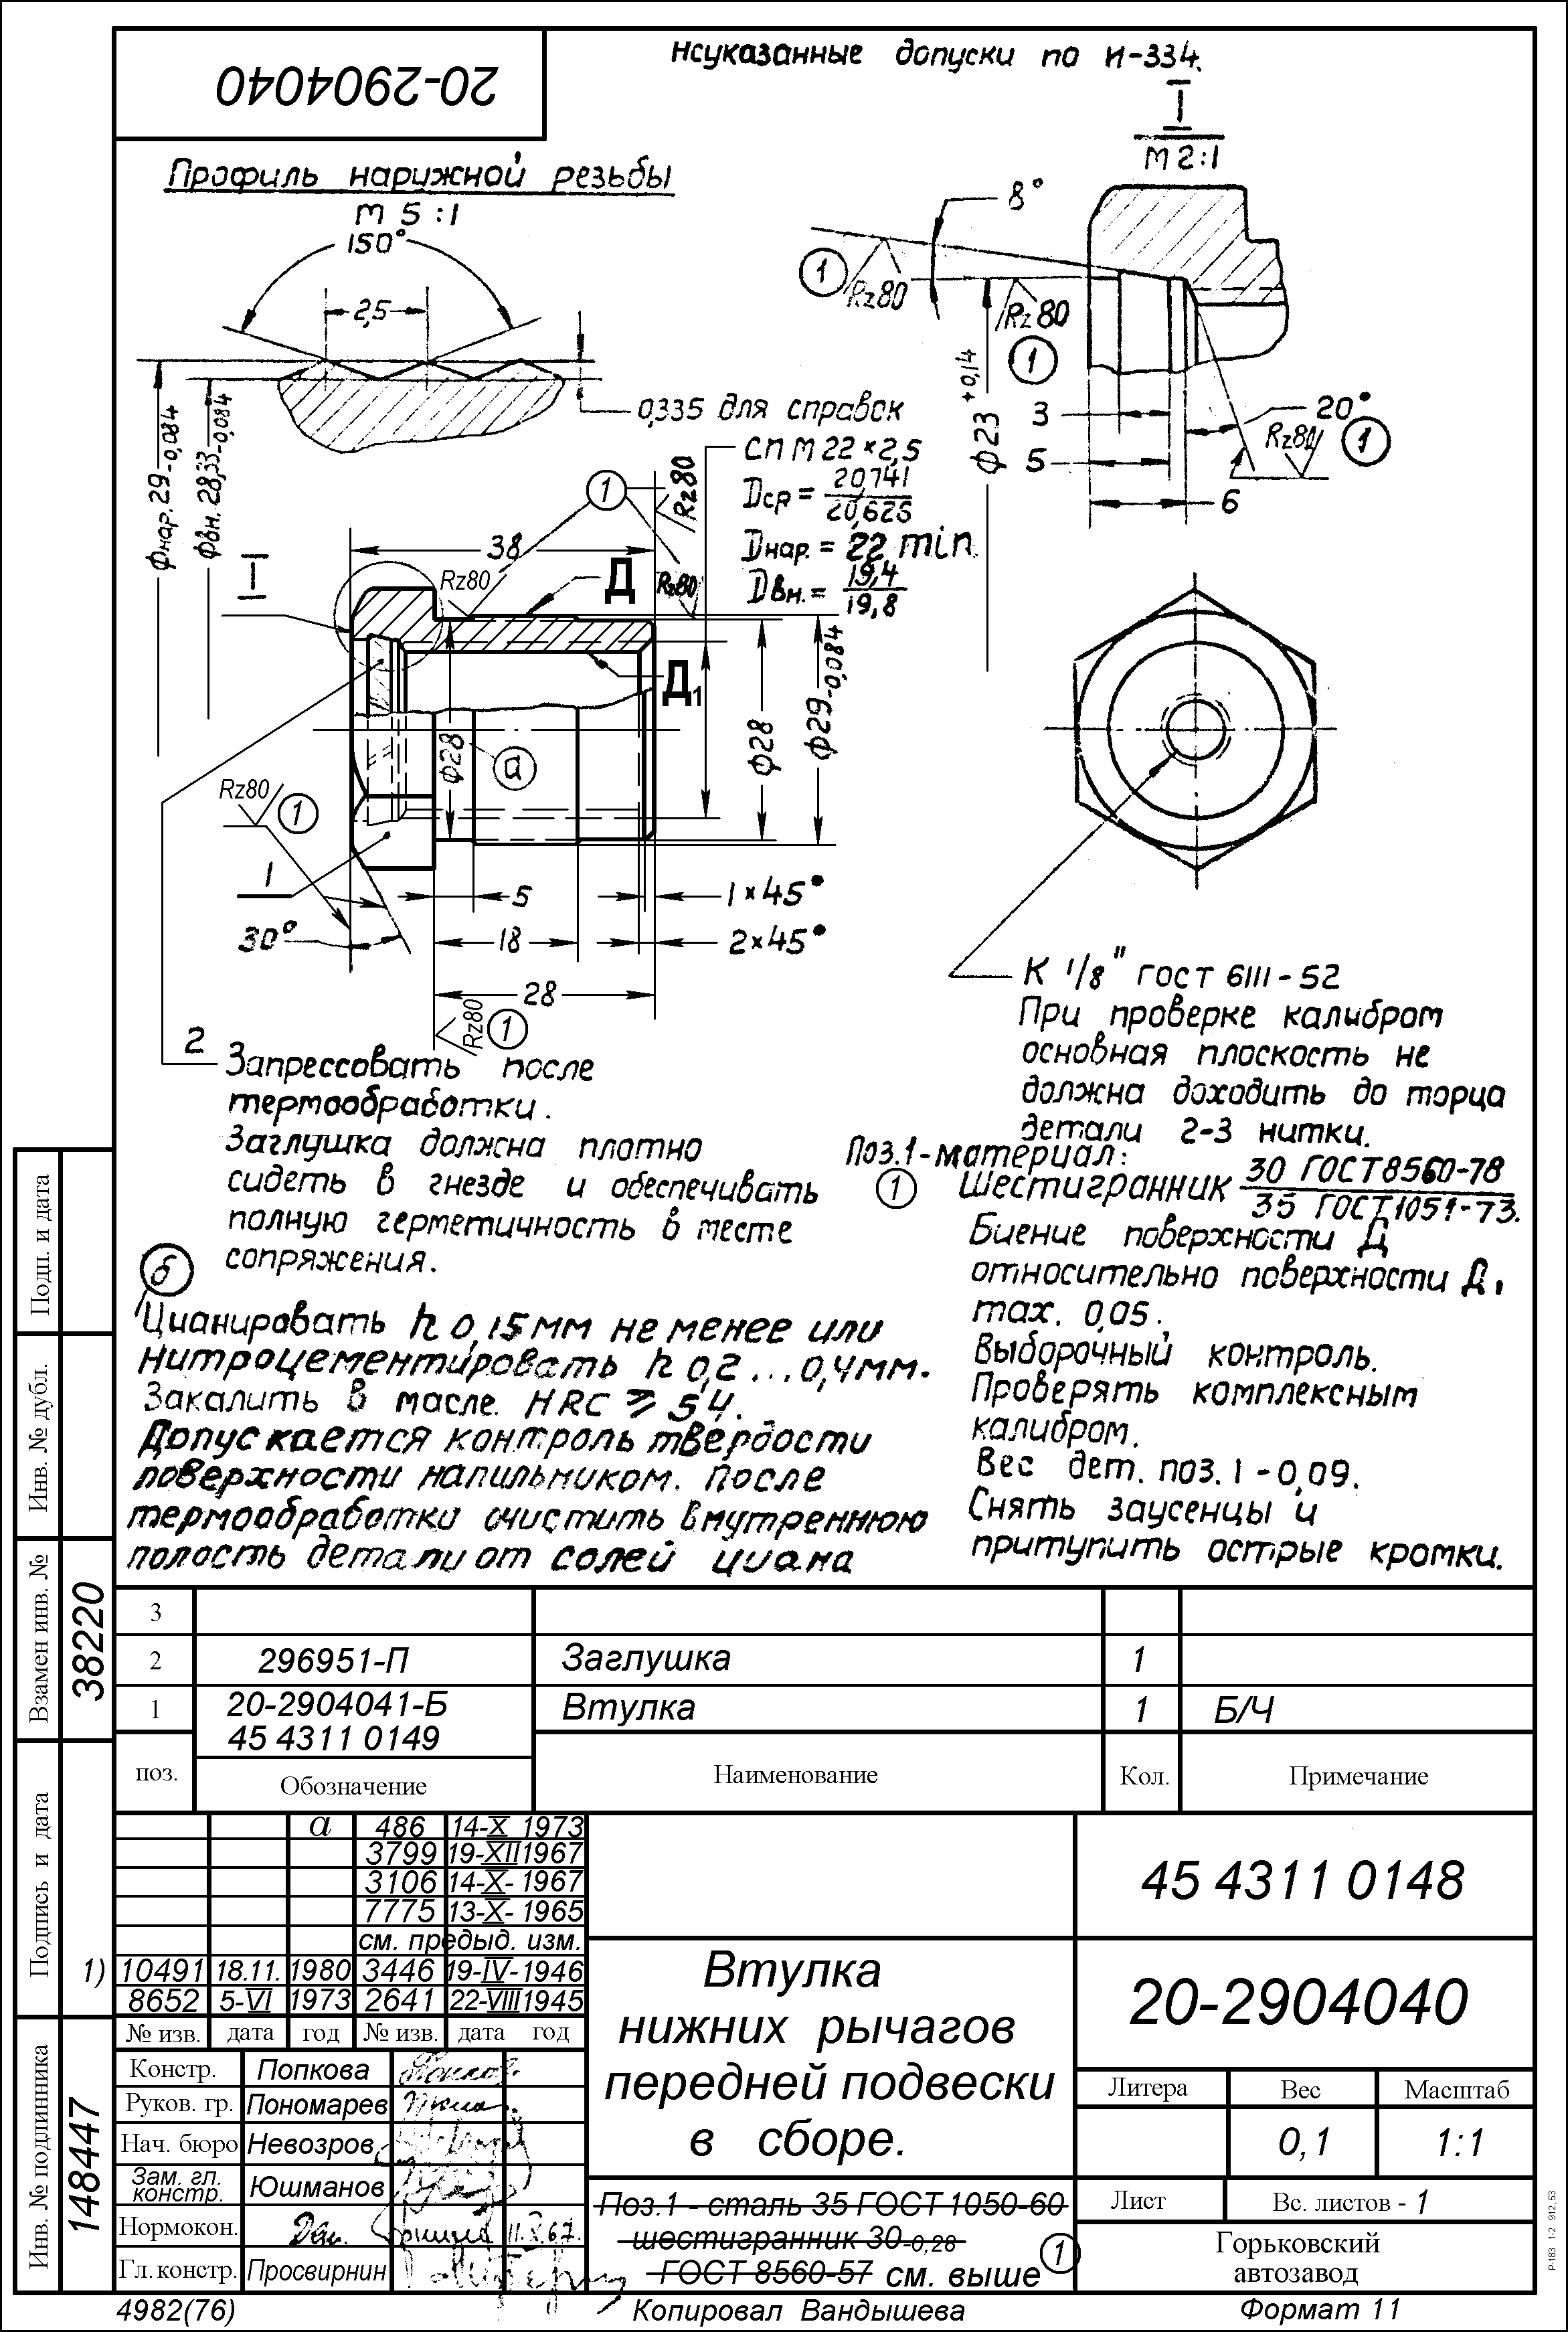 20-2904040
Нсуказанные допуски по И-334.
Профиль нарижной резьбы
М 5:1
150°
2,5
0,335 для справок
Фнар. 29-0,084
Фвн. 28,33-0,084
I
М 2:1
8°
1
Rz80
Rz80
1
Ф23 +0,14
3
5
6
20°
Rz80
1
СП М 22×2,5
Dср = 20,741
20,626
Dнар. = 22 min.
Dвн. = 19,4
19,8
1
Rz80
38
I
Rz80
Д
Rz80
Д1
Ф28
а
Ф28
Ф29-0,084
Rz80
1
1
30°
5
18
28
1×45°
2×45°
Rz80
1
2
Запрессовать после
термообработки.
Заглушка должна плотно
сидеть в гнезде и обеспечивать
полную герметичность в месте
сопряжения.
б
Цианировать h 0,15мм не менее или
Нитроцементировать h 0,2...0,4мм.
Закалить в масле. HRC ⩾ 54.
Допускается контроль твердости
поверхности напильником. После
термообработки очистить внутреннюю
полость детали от солей циана
К 1/8" ГОСТ 6111-52
При проверке калибром
основная плоскость не
должна доходить до торца
детали 2-3 нитки.
Поз.1-материал:
1 Шестигранник 30 ГОСТ8560-78
35 ГОСТ1051-73.
Биение поверхности Д
относительно поверхности Д1
max. 0,05.
Выборочный контроль.
Проверять комплексным
калибром.
Вес дет. поз.1-0,09.
Снять заусенцы и
притупить острые кромки.
3
2 296951-П Заглушка 1
1 20-2904041-Б Втулка 1 Б/Ч
45 4311 0149
поз. Обозначение Наименование Кол. Примечание
а 486 14-X 1973
3799 19-XII 1967
3106 14-X- 1967
7775 13-X- 1965
см. предыд. изм.
1) 10491 18.11. 1980 3446 19-IV-1946
8652 5-VI 1973 2641 22-VIII 1945
№ изв. дата год № изв. дата год
Констр. Попкова
Руков. гр. Пономарев
Нач. бюро Невозров
Зам. гл. констр. Юшманов
Нормокон. 11.X.67.
Гл. констр. Просвирнин
Втулка
нижних рычагов
передней подвески
в сборе.
Поз.1 - сталь 35 ГОСТ 1050-60
шестигранник 30-0,28
ГОСТ 8560-57 см. выше 1
45 4311 0148
20-2904040
Литера Вес Масштаб
0,1 1:1
Лист Вс. листов - 1
Горьковский
автозавод
4982(76) Копировал Вандышева Формат 11
Подп. и дата
Инв. № дубл.
Взамен инв. № 38220
Подпись и дата
Инв. № подлинника 148447
Р-183 1-2 912, 53